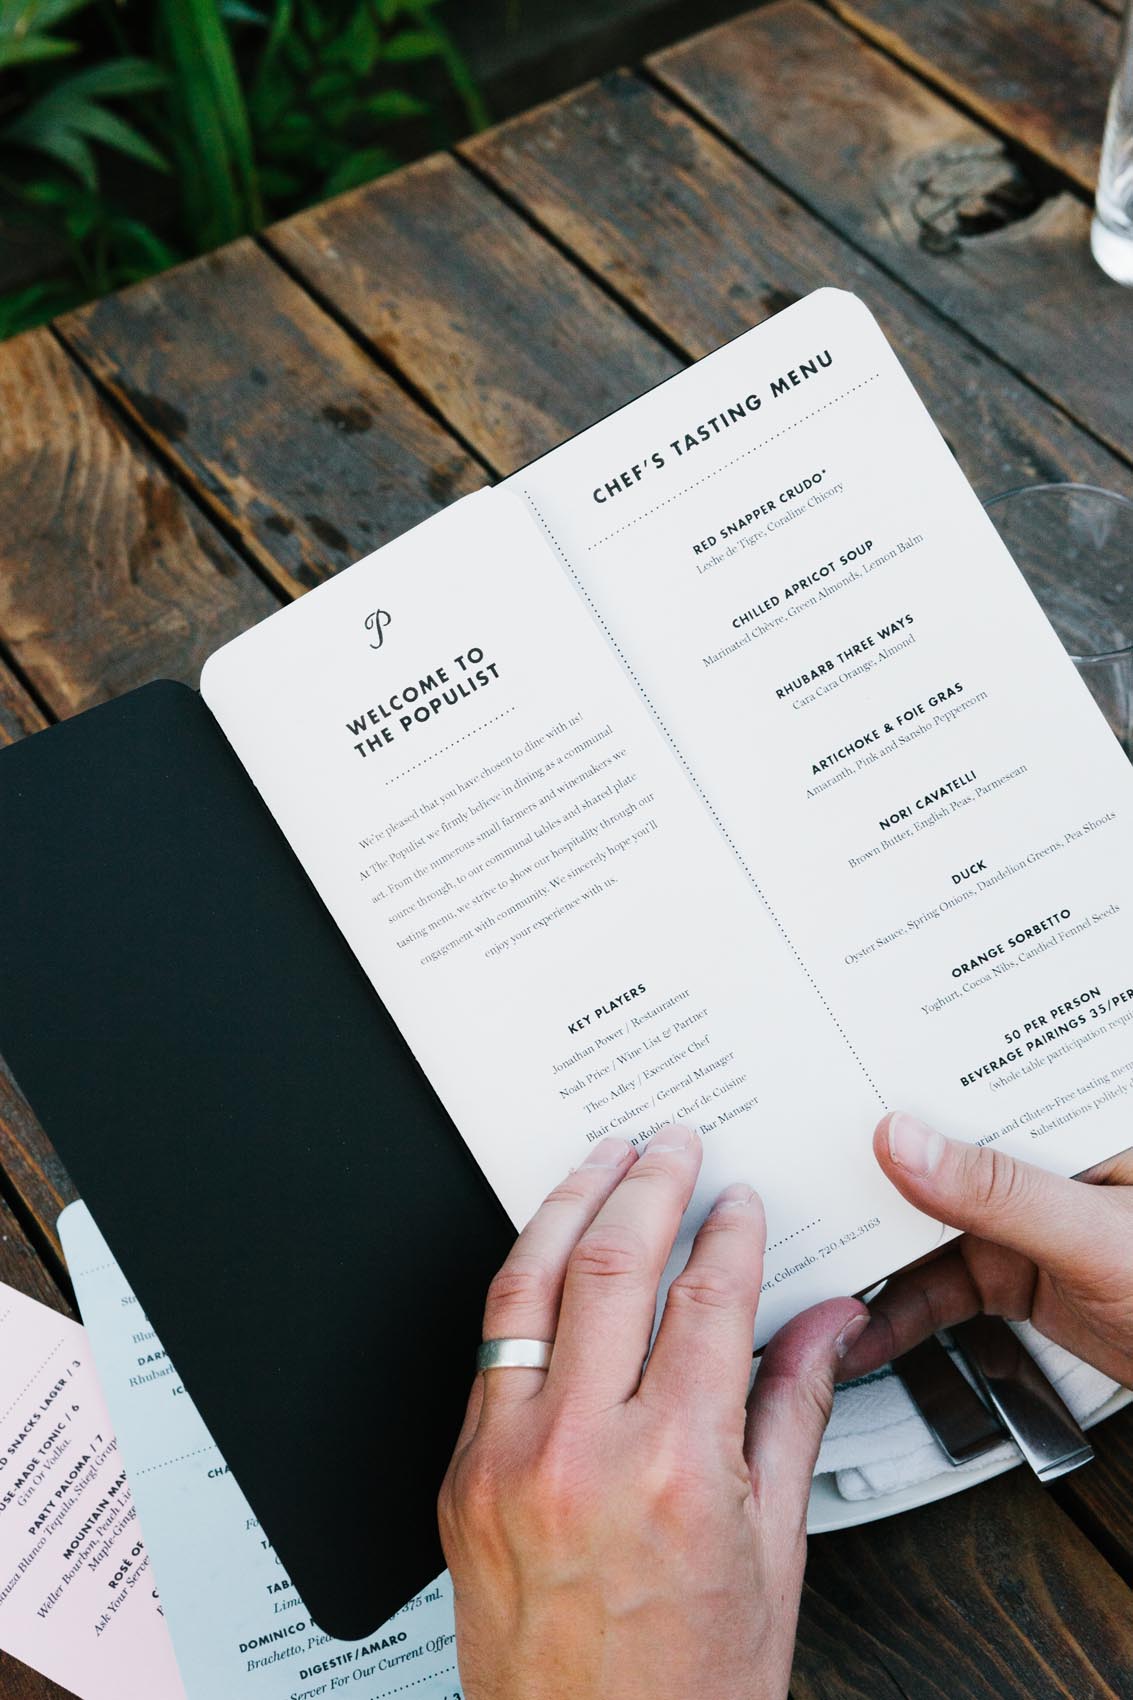 P
WELCOME TO
THE POPULIST
We're pleased that you have chosen to dine with us!
At The Populist we firmly believe in dining as a communal
act. From the numerous small farmers and winemakers we
source through, to our communal tables and shared plate
tasting menu, we strive to show our hospitality through our
engagement with community. We sincerely hope you'll
enjoy your experience with us.
KEY PLAYERS
Jonathan Power / Restaurateur
Noah Price / Wine List & Partner
Theo Adley / Executive Chef
Blair Crabtree / General Manager
Robles / Chef de Cuisine
Bar Manager
Colorado. 720 432.3163
CHEF'S TASTING MENU
RED SNAPPER CRUDO*
Leche de Tigre, Coraline Chicory
CHILLED APRICOT SOUP
Marinated Chèvre, Green Almonds, Lemon Balm
RHUBARB THREE WAYS
Cara Cara Orange, Almond
ARTICHOKE & FOIE GRAS
Amaranth, Pink and Sansho Peppercorn
NORI CAVATELLI
Brown Butter, English Peas, Parmesean
DUCK
Oyster Sauce, Spring Onions, Dandelion Greens, Pea Shoots
ORANGE SORBETTO
Yoghurt, Cocoa Nibs, Candied Fennel Seeds
50 PER PERSON
BEVERAGE PAIRINGS 35/PER
(whole table participation
and Gluten-Free tasting
Substitutions politely
SNACKS LAGER / 3
TONIC / 6
Gin Or Vodka.
PARTY PALOMA / 7
Blanco Tequila, Stiegl
MOUNTAIN
Weller Bourbon, Peach
ROSÉ OF
Ask Your
Rhubarb
DOMINICO
375 ml.
Brachetto,
DIGESTIF/AMARO
Server For Our Current